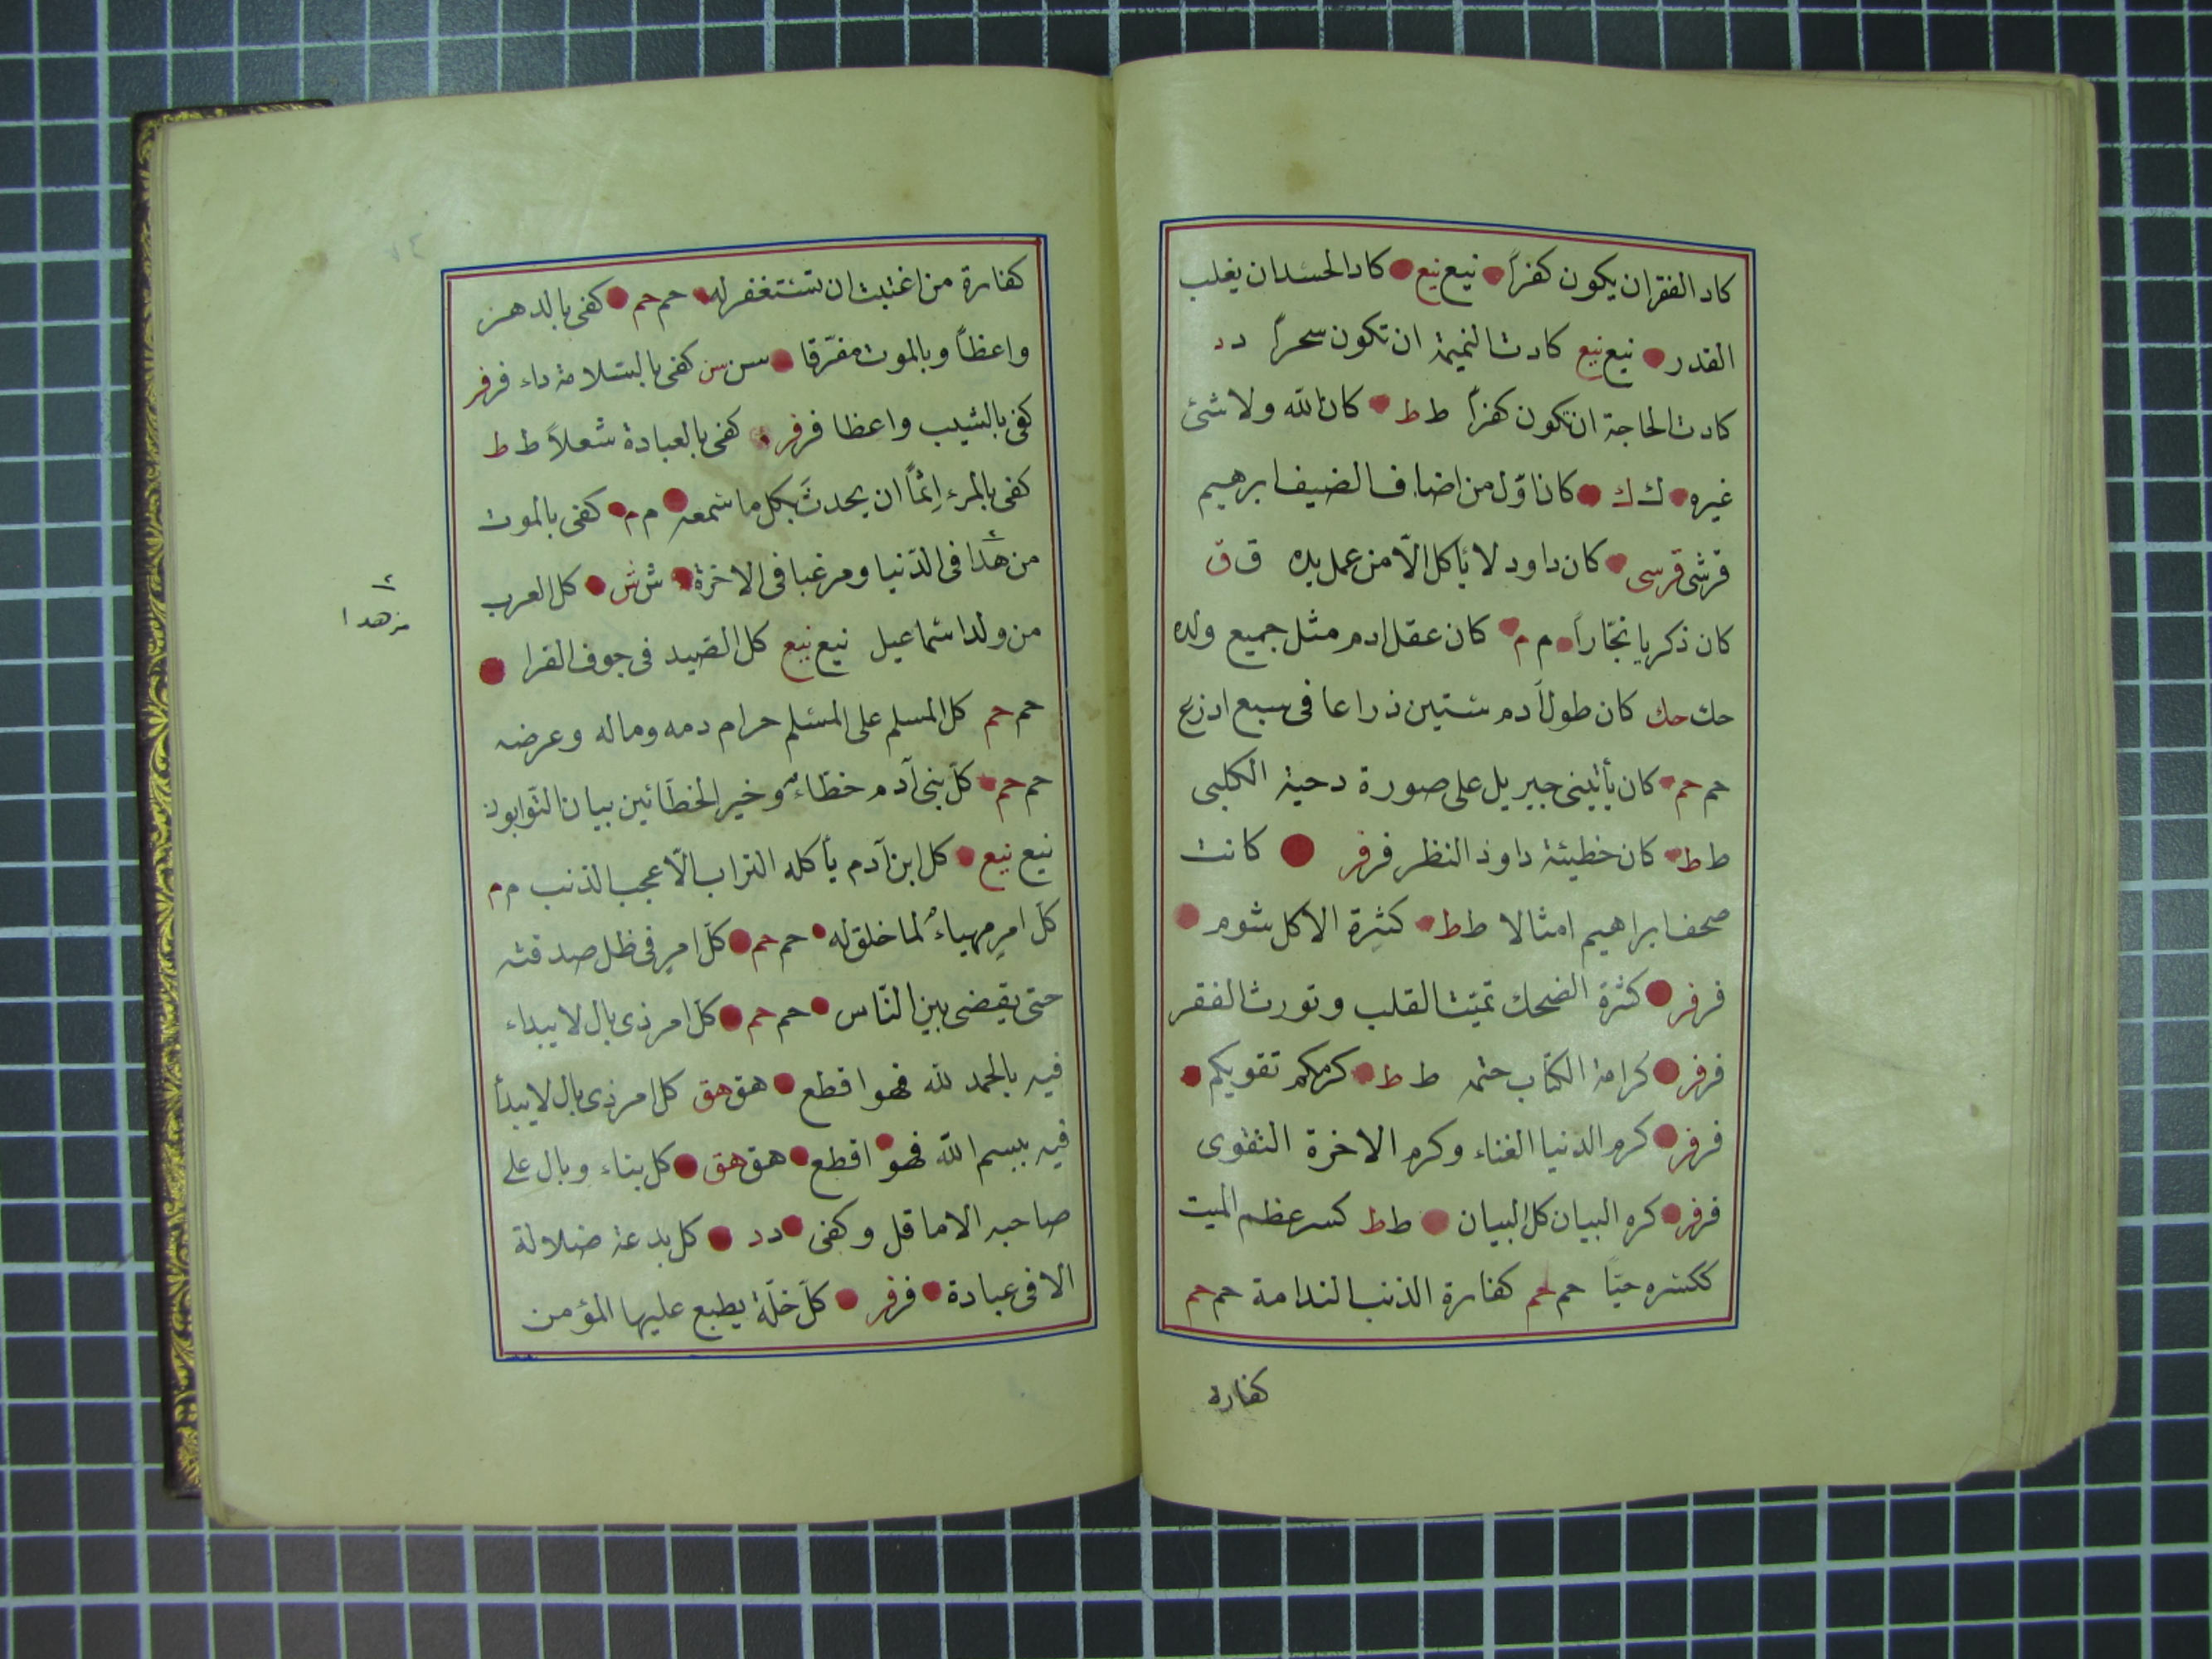 كاد الفقر ان يكون كفراً نيع نيع كاد الحسد ان يغلب
القدر نيع نيع كادت النميمة ان تكون سحراً د د
كادت الحاجة ان تكون كفراً ط ط كان الله ولا شئ
غيره ك ك كان اوّل من اضاف الضيف ابرهيم
قرشى قرسى كان داود لا يأكل الّا من عمل يده ق ق
كان ذكريا نجّاراً م م كان عقل ادم مثل جميع ولده
حك حك كان طول آدم ستين ذراعا فى سبع اذرع
حم حم كان يأتينى جبريل على صورة دحية الكلبى
ط ط كان خطيئة داود النظر فر فر كانت
صحف ابراهيم امثالا ط ط كثرة الاكل شوم
فر فر كثرة الضحك تميّت القلب وتورث الفقر
فر فر كرامة الكتاب ختمه ط ط كرمكم تقويكم
فر فر كرم الدنيا الغناء وكرم الاخرة التقوى
فر فر كره البيان كل البيان ط ط كسر عظم الميت
ككسره حيّاً حم حم كفارة الذنب الندامة حم حم
كفاره
كفارة من اغتبت ان تستغفر له حم حم كفى بالدهر
واعظاً وبالموت مفرّقا سن سن كفى بالسلامة داء فر فر
كفى بالشيب واعظا فر فر كفى بالعبادة شعلاً ط ط
كفى بالمرء اِثماً ان يحدثَ بكل ما سمعه م م كفى بالموت
من هدا فى الدّنيا ومرغبا فى الاخرة ش ش كل العرب
مزهدا
من ولد اسماعيل نيع نيع كل الصيد فى جوف الفرا
حم حم كل المسلم على المسلم حرام دمه وماله وعرضه
حم حم كلّ بنى آدم خطّاءٌ وخير الخطّائين بيان التوابون
نيع نيع كل ابن آدم يأكله التراب الّا عجب الذنب م م
كلّ امرٍ مهياءٌ لما خلق له حم حم كلّ امر فى ظل صدقته
حتى يقضى بين النّاس حم حم كلّ امر ذى بال لا يبداء
فيه بالحمد لله فهو اقطع هق هق كل امر ذى بال لا يبدأ
فيه ببسم الله فهو اقطع هق هق كل بناء وبال على
صاحبه الا ما قل وكفى د د كل بدعة ضلالة
الا فى عبادة فر فر كلّ خلّة يطبع عليها المؤمن